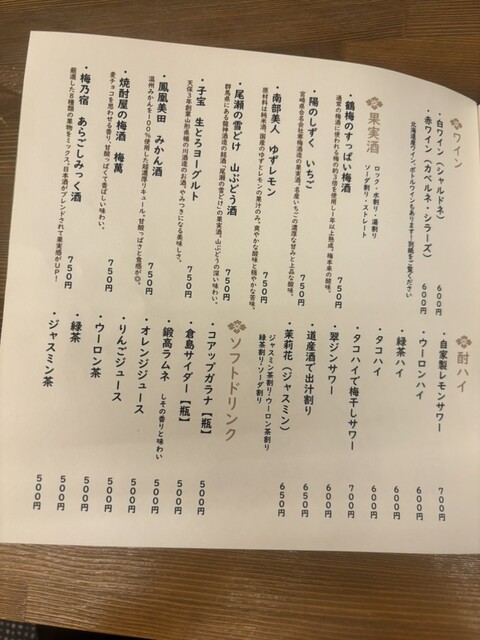 ワイン
・白ワイン（シャルドネ） 600円
・赤ワイン（カベルネ・シラーズ） 600円
北海道産ワイン、ボトルワインもあります！別紙をご覧ください
果実酒
ロック・水割り・湯割り
ソーダ割り・ストレート
・鶴梅のすっぱい梅酒 750円
通常の梅酒に使われる梅の約3倍を使用し1年以上熟成。梅本来の酸味。
・陽のしずく いちご 750円
宮崎県合名会社寒梅酒造の果実酒。名産いちごの濃厚な甘みと上品な酸味。
・南部美人 ゆずレモン 750円
原材料は純米酒、国産のゆずとレモンの果汁のみ。爽やかな酸味と穏やかな苦味。
・尾瀬の雪どけ 山ぶどう酒 750円
群馬県にある龍神酒造の銘酒、「尾瀬の雪どけ」の果実酒。山ぶどうの深い味わい。
・子宝 生とろヨーグルト 750円
天保3年創業山形県楯の川酒造のお酒。やみつきになる美味しさ。
・鳳凰美田 みかん酒 750円
温州みかんを100%使用した超濃厚リキュール。甘酸っぱさと食感が◎。
・焼酎屋の梅酒 梅萬 750円
麦チョコを思わせる香り、甘酸っぱくて香ばしい味わい。
・梅乃宿 あらごしみっく酒 750円
厳選した8種類の果物をミックス。日本酒がブレンドされて果実感がUP！
酎ハイ
・自家製レモンサワー 700円
・ウーロンハイ 600円
・緑茶ハイ 600円
・タコハイ 600円
・タコハイで梅干しサワー 700円
・翠ジンサワー 600円
・道産酒で出汁割り 650円
・茉莉花（ジャスミン） 650円
ジャスミン茶割り・ウーロン茶割り
緑茶割り・ソーダ割り
ソフトドリンク
・コアップガラナ【瓶】 500円
・倉島サイダー【瓶】 500円
・鍛高ラムネ しその香りと味わい 500円
・オレンジジュース 500円
・りんごジュース 500円
・ウーロン茶 500円
・緑茶 500円
・ジャスミン茶 500円